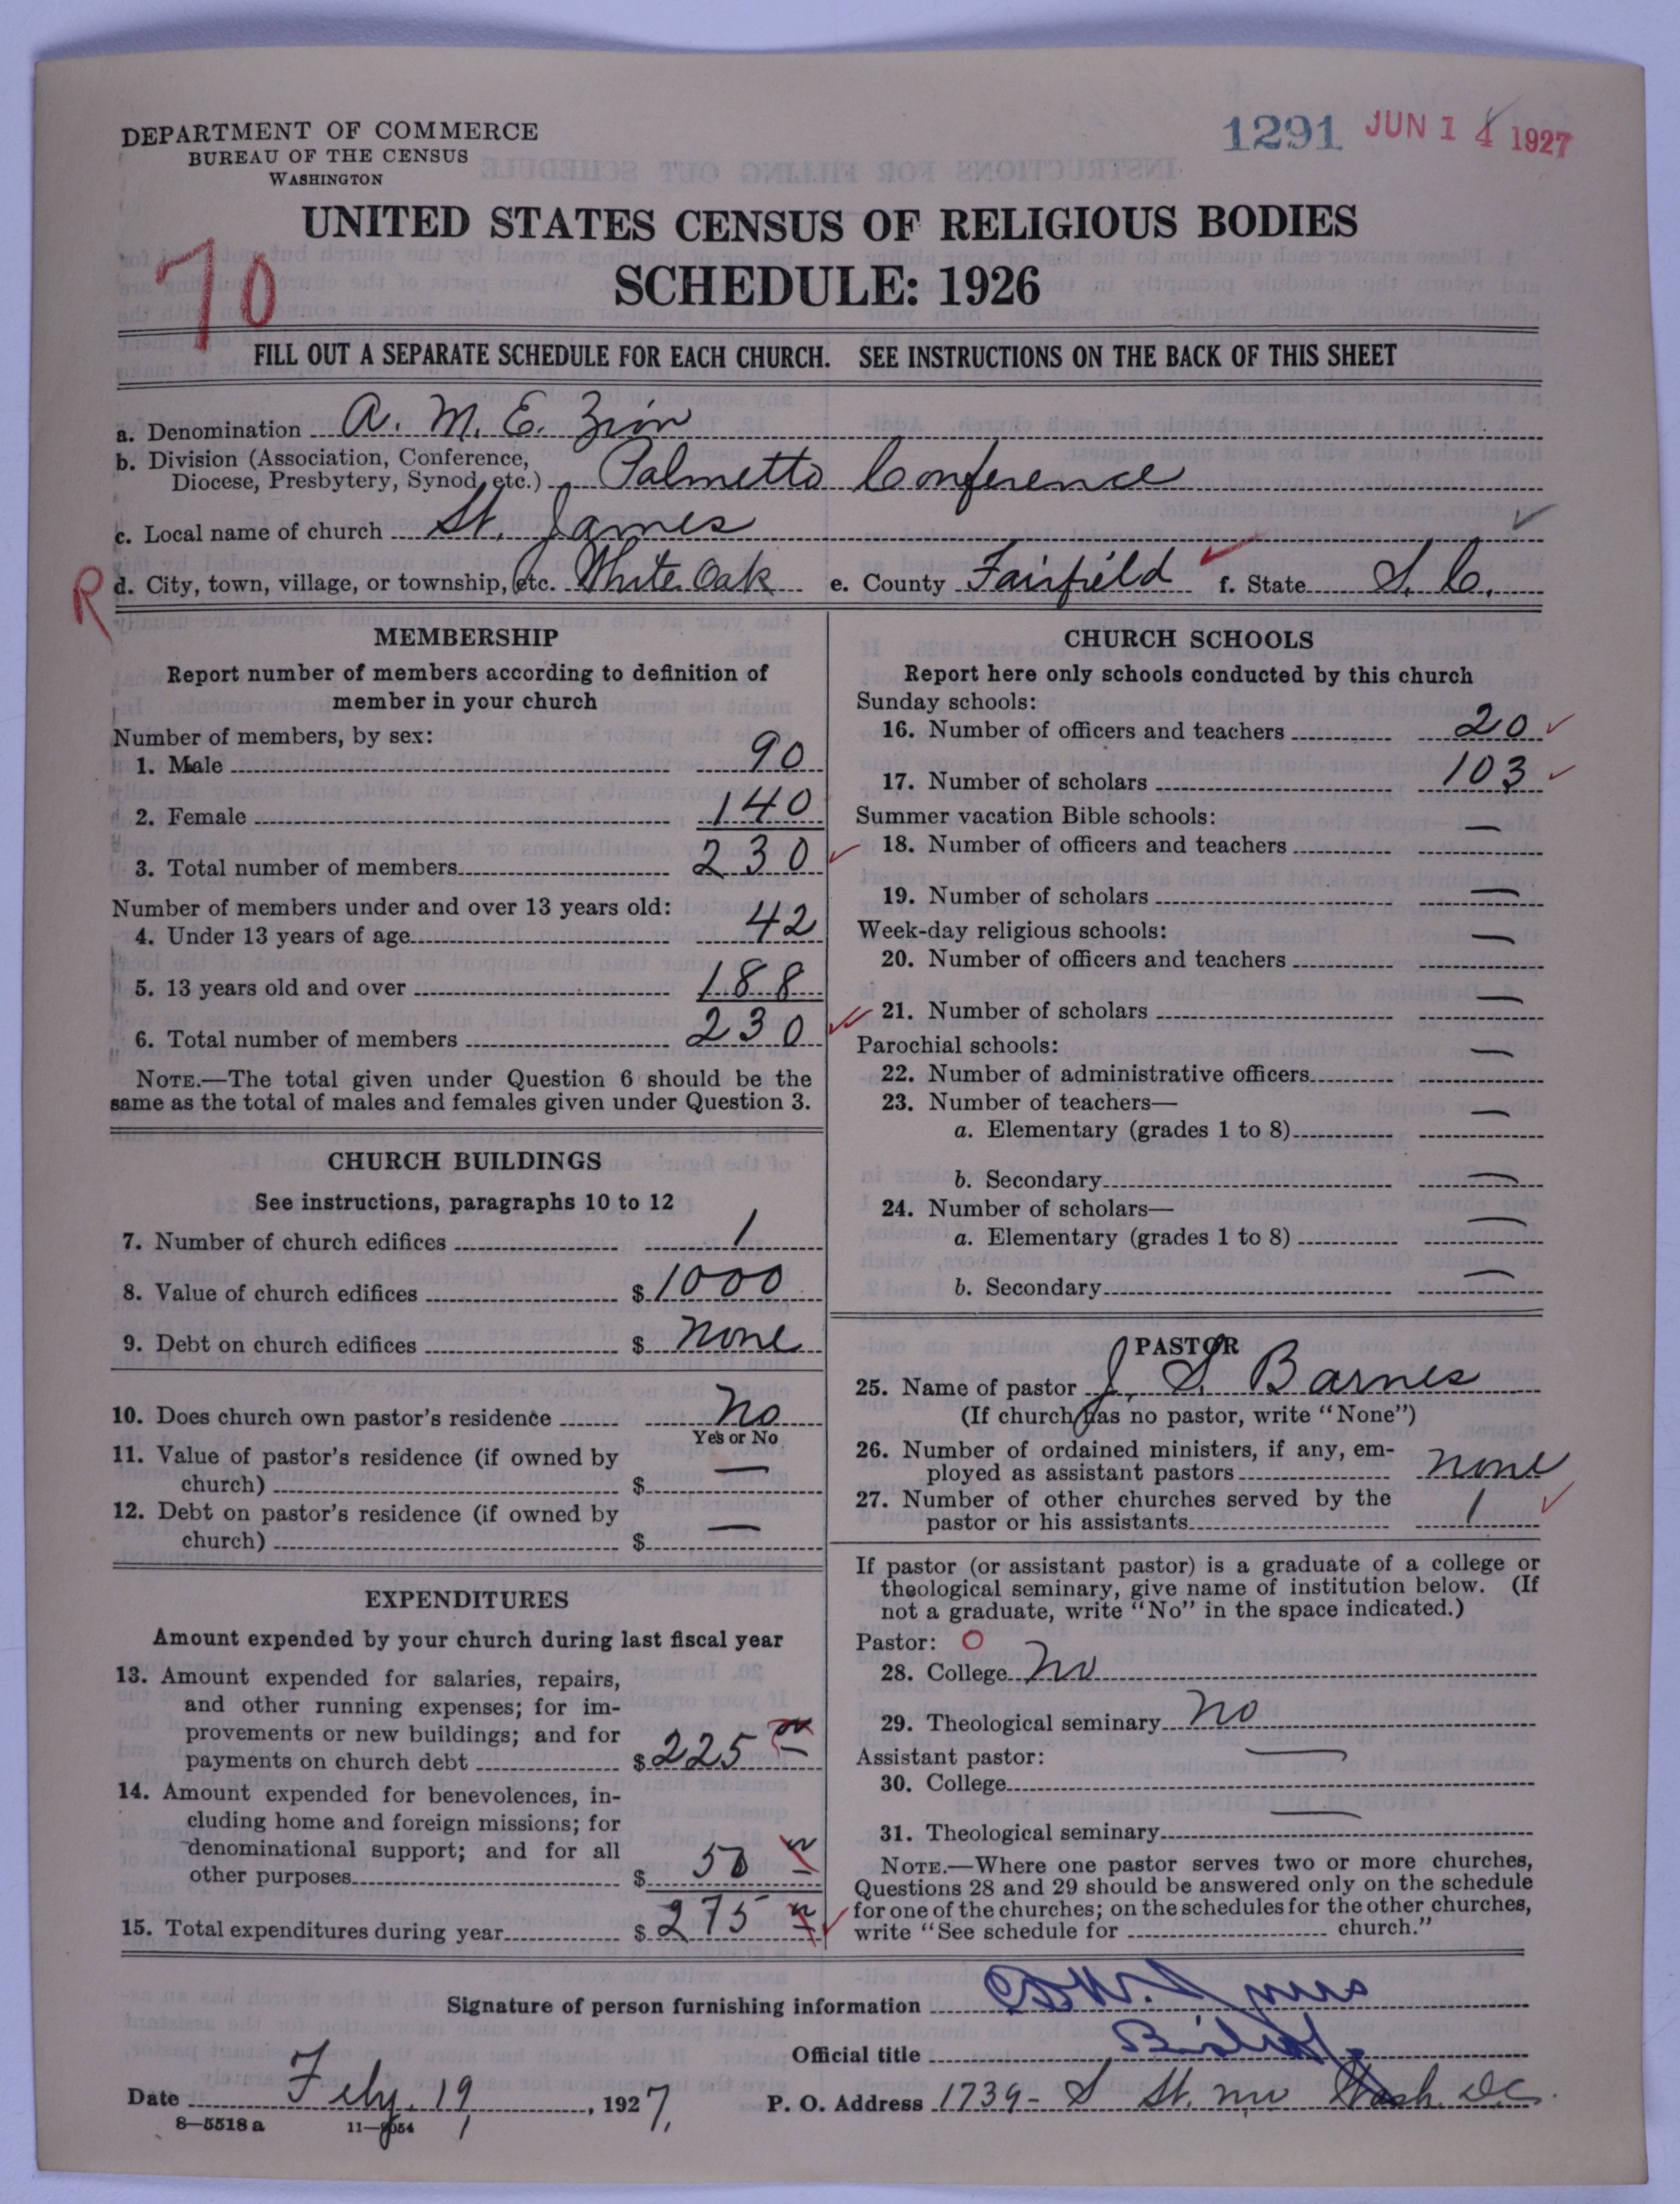 DEPARTMENT OF COMMERCE
BUREAU OF THE CENSUS
WASHINGTON
1291 JUN 14 1927
UNITED STATES CENSUS OF RELIGIOUS BODIES
SCHEDULE: 1926
70
FILL OUT A SEPARATE SCHEDULE FOR EACH CHURCH. SEE INSTRUCTIONS ON THE BACK OF THIS SHEET
a. Denomination A. M. E. Zion
b. Division (Association, Conference,
Diocese, Presbytery, Synod, etc.) Palmetto Conference
c. Local name of church St. James
R d. City, town, village, or township, etc. White Oak e. County Fairfield f. State S. C.
MEMBERSHIP
Report number of members according to definition of
member in your church
Number of members, by sex:
1. Male 90
2. Female 140
3. Total number of members 230
Number of members under and over 13 years old:
4. Under 13 years of age 42
5. 13 years old and over 188
6. Total number of members 230
NOTE.—The total given under Question 6 should be the
same as the total of males and females given under Question 3.
CHURCH BUILDINGS
See instructions, paragraphs 10 to 12
7. Number of church edifices 1
8. Value of church edifices $ 1000
9. Debt on church edifices $ none
10. Does church own pastor's residence No
Yes or No
11. Value of pastor's residence (if owned by
church) $ —
12. Debt on pastor's residence (if owned by
church) $ —
EXPENDITURES
Amount expended by your church during last fiscal year
13. Amount expended for salaries, repairs,
and other running expenses; for im-
provements or new buildings; and for
payments on church debt $ 225
14. Amount expended for benevolences, in-
cluding home and foreign missions; for
denominational support; and for all
other purposes $ 50
15. Total expenditures during year $ 275
CHURCH SCHOOLS
Report here only schools conducted by this church
Sunday schools:
16. Number of officers and teachers 20
17. Number of scholars 103
Summer vacation Bible schools:
18. Number of officers and teachers —
19. Number of scholars —
Week-day religious schools:
20. Number of officers and teachers —
21. Number of scholars —
Parochial schools:
22. Number of administrative officers —
23. Number of teachers—
a. Elementary (grades 1 to 8) —
b. Secondary —
24. Number of scholars—
a. Elementary (grades 1 to 8) —
b. Secondary —
PASTOR
25. Name of pastor J. S. Barnes
(If church has no pastor, write "None")
26. Number of ordained ministers, if any, em-
ployed as assistant pastors none
27. Number of other churches served by the
pastor or his assistants 1
If pastor (or assistant pastor) is a graduate of a college or
theological seminary, give name of institution below. (If
not a graduate, write "No" in the space indicated.)
Pastor: O
28. College No
29. Theological seminary No
Assistant pastor:
30. College —
31. Theological seminary —
NOTE.—Where one pastor serves two or more churches,
Questions 28 and 29 should be answered only on the schedule
for one of the churches; on the schedules for the other churches,
write "See schedule for church."
Signature of person furnishing information
Official title Bishop
Date Feby. 19, 1927, P. O. Address 1739- S St. NW Wash. DC.
8—5518 a